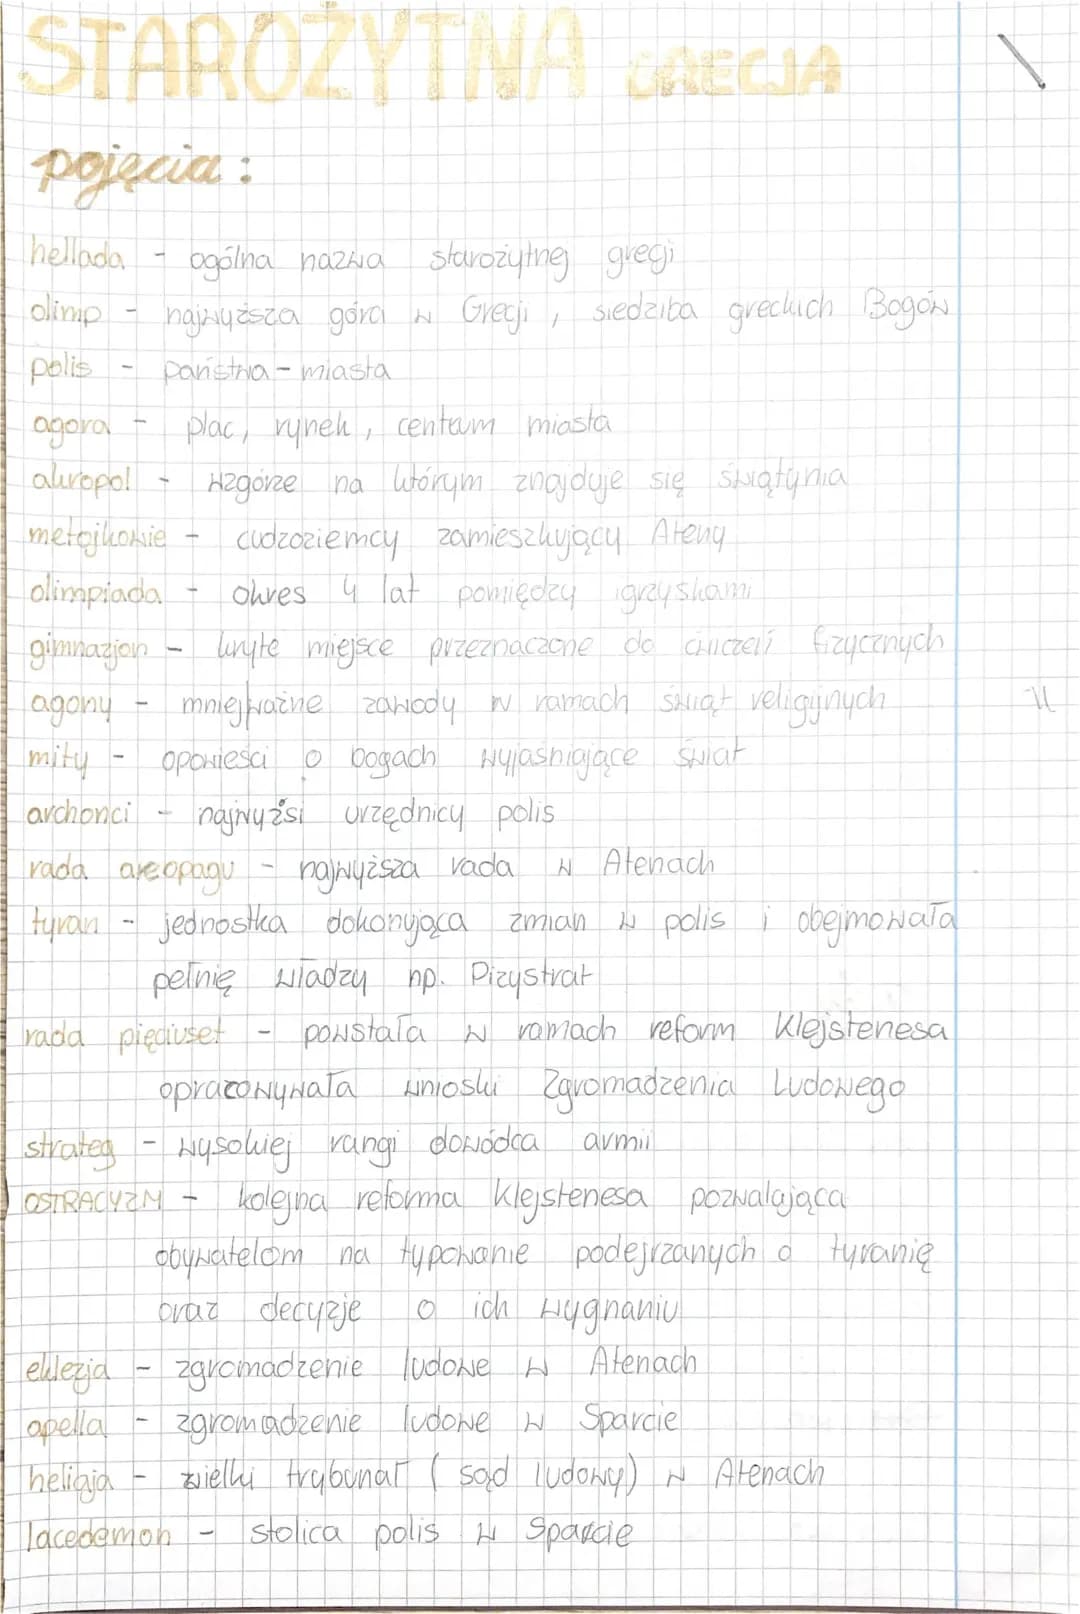 STAROŻYTNA GRECJA
pojęcia:
hellada - ogólna nazwa starożytnej gregji
olimp - najwyższa góra w Grecji, siedziba greckich Bogów
polis - państwa-miasta
agora - plac, rynek, centrum miasta
akropol - wzgórze na którym znajduje się świątynia
metojkowie - cudzoziemcy zamieszkujący Ateny
olimpiada - okres 4 lat pomiędzy igrzyskami
gimnazjon - kryte miejsce przeznaczone do ćwiczeń fizycznych
agony - mniej ważne zawody w ramach świąt religijnych
mity - opowieści o bogach wyjaśniające świat
archonci - najwyżsi urzędnicy polis
rada areopagu - najwyższa rada w Atenach
tyran - jednostka dokonująca zmian w polis i obejmowała
pełnię władzy np. Pizystrat
rada pięciuset - powstała w ramach reform Klejstenesa
opracowywała wnioski Zgromadzenia Ludowego
strateg - wysokiej rangi dowódca armii
OSTRACYZM - kolejna reforma Klejstenesa pozwalająca
obywatelom na typowanie podejrzanych o tyranię
oraz decyzje o ich wygnaniu
eklezja - zgromadzenie ludowe w Atenach
apella - zgromadzenie ludowe w Sparcie
heliaja - wielki trybunał (sąd ludowy) w Atenach
lacedemon - stolica polis w Sparcie